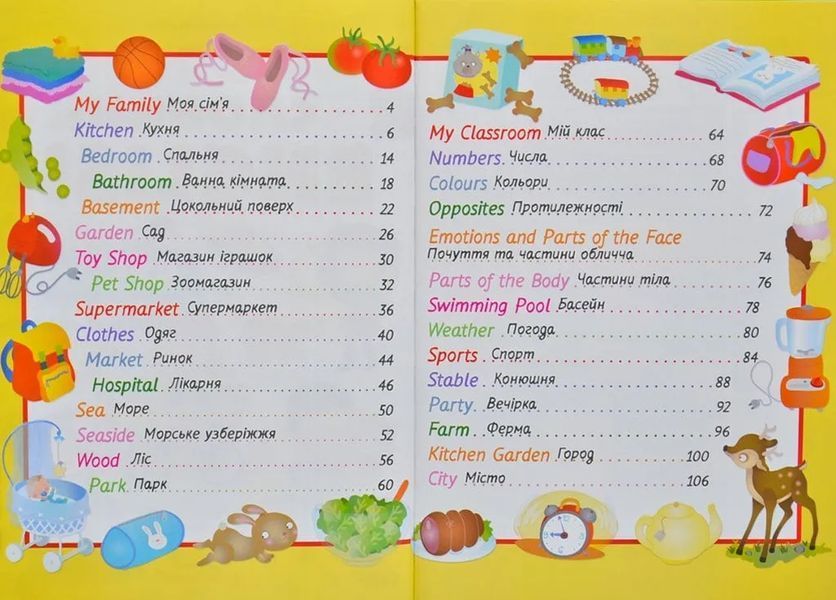 My Family Моя сім'я 4
Kitchen Кухня 6
Bedroom Спальня 14
Bathroom Ванна кімната 18
Basement Цокольний поверх 22
Garden Сад 26
Toy Shop Магазин іграшок 30
Pet Shop Зоомагазин 32
Supermarket Супермаркет 36
Clothes Одяг 40
Market Ринок 44
Hospital Лікарня 46
Sea Море 50
Seaside Морське узберіжжя 52
Wood Ліс 56
Park Парк 60
My Classroom Мій клас 64
Numbers Числа 68
Colours Кольори 70
Opposites Протилежності 72
Emotions and Parts of the Face
Почуття та частини обличча 74
Parts of the Body Частини тіла 76
Swimming Pool Басейн 78
Weather Погода 80
Sports Спорт 84
Stable Конюшня 88
Party Вечірка 92
Farm Ферма 96
Kitchen Garden Город 100
City Місто 106